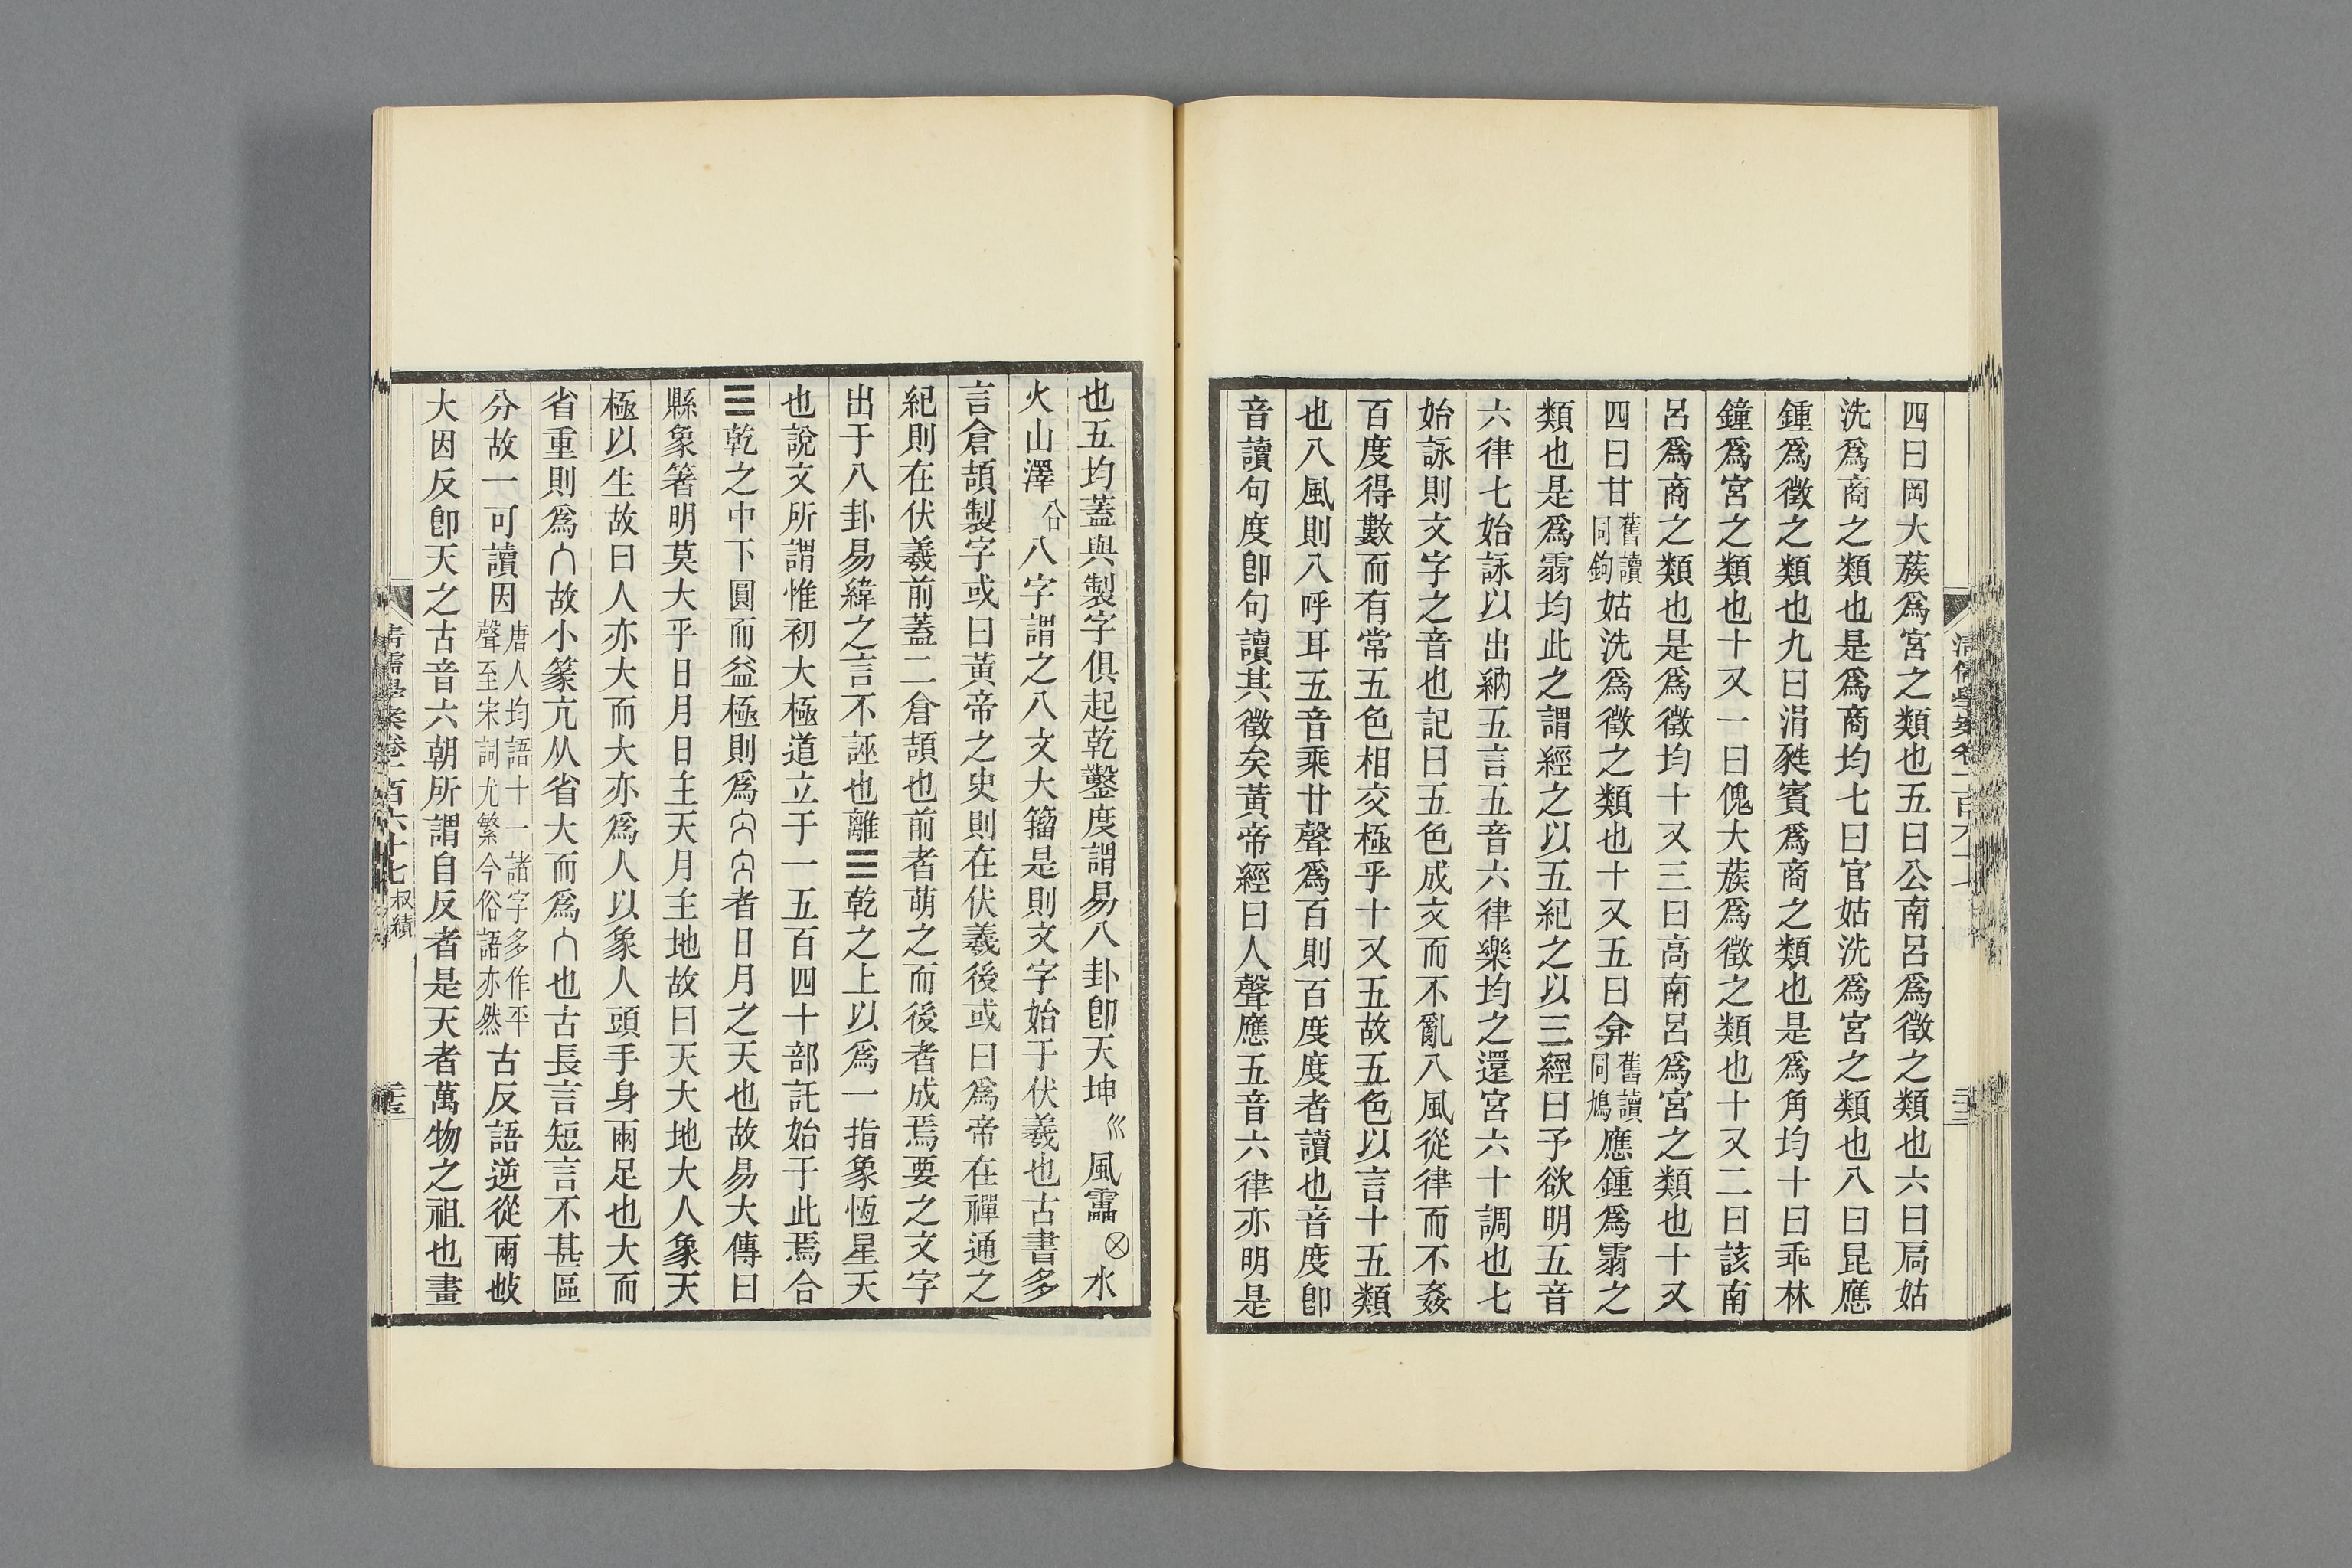 四曰岡大蔟爲宮之類也五曰公南呂爲徵之類也六曰扃姑
洗爲商之類也是爲商均七曰官姑洗爲宮之類也八曰昆應
鍾爲徵之類也九曰涓蕤賓爲商之類也是爲角均十曰乖林
鐘爲宮之類也十又一曰傀大蔟爲徵之類也十又二曰該南
呂爲商之類也是爲徵均十又三曰高南呂爲宮之類也十又
四曰甘舊讀同鉤姑洗爲徵之類也十又五曰弇舊讀同鳩應鍾爲霛之
類也是爲霛均此之謂經之以五紀之以三經曰予欲明五音
六律七始詠以出納五言五音六律樂均之還宮六十調也七
始詠則文字之音也記曰五色成文而不亂八風從律而不姦
百度得數而有常五色相交極乎十又五故五色以言十五類
也八風則八呼耳五音乘廿聲爲百則百度度者讀也音度卽
音讀句度卽句讀其徵矣黃帝經曰人聲應五音六律亦明是
也五均蓋與製字俱起乾鑿度謂易八卦卽天坤巛風靁水
火山澤㕣八字謂之八文大籀是則文字始于伏羲也古書多
言倉頡製字或曰黃帝之史則在伏羲後或曰爲帝在禪通之
紀則在伏羲前蓋二倉頡也前者萌之而後者成焉要之文字
出于八卦易緯之言不誣也離☰乾之上以爲一指象恆星天
也說文所謂惟初大極道立于一五百四十部託始于此焉合
☰乾之中下圓而益極則爲者日月之天也故易大傳曰
縣象箸明莫大乎日月日主天月主地故曰天大地大人象天
極以生故曰人亦大而大亦爲人以象人頭手身兩足也大而
省重則爲故小篆亢从省大而爲也古長言短言不甚區
分故一可讀因唐人均語十一諸字多作平聲至宋詞尤繁今俗語亦然古反語逆從兩㢤
大因反卽天之古音六朝所謂自反者是天者萬物之祖也畫
清儒學案卷一百六十七 叔績